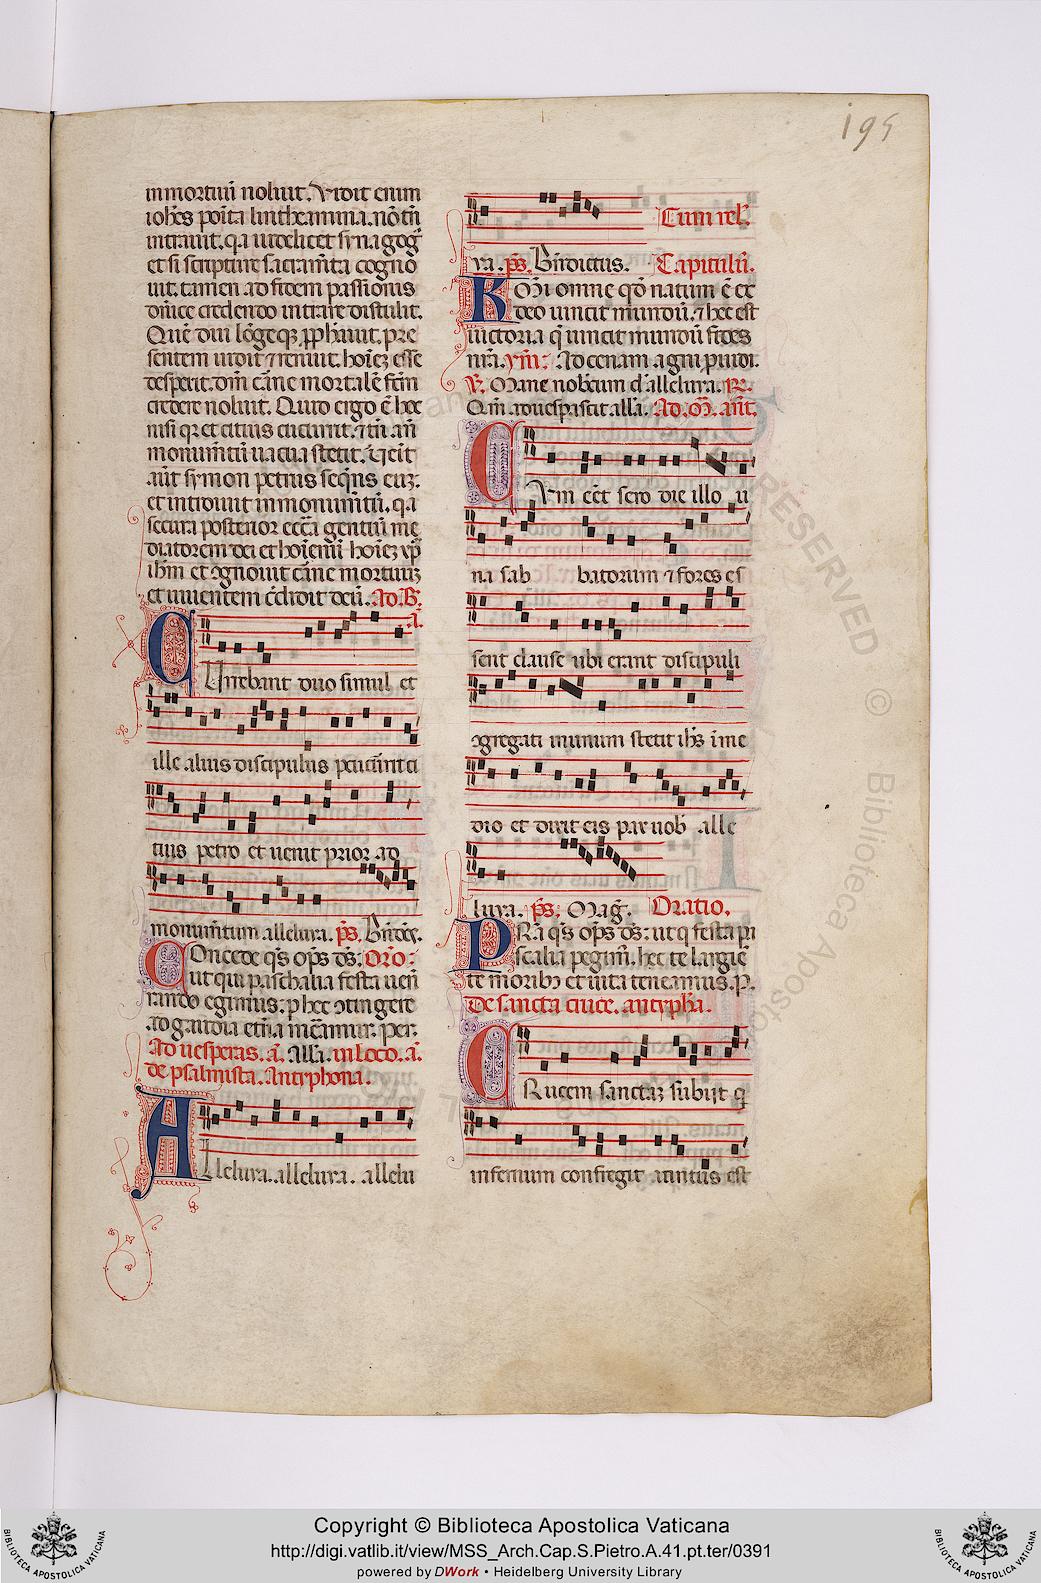 195
in mortuũ noluit. Vidit enim
ioħes posita lintheamina. nõ tñ
intrauit. q̃a uidelicet synagoga
et si scripture sacram̃ta cogno
uit. tamen ad fidem passionis
dñice credendo intrare distulit.
Quẽ diu lõgeq; pphauit. pre
sentem uidit et renuit. hoĩez esse
despexit. dñm cãne mortalẽ fcm̃
credere noluit. Quid ergo ẽ hoc
nisi q; et citius cucurrit. et tñ añ
monum̃tũ uacua stetit.
aũt symon petrus seq̃ns euz.
et introiuit in monum̃tũ. q̃a
secuta posterior ecc̃a gentiũ me
diatorem dei et hoĩnum hoĩez xp̃m
ihm̃ et cognouit cãne mortuuz
et uiuentem c̃didit deũ. Ad B.
a.
Currebant duo simul et
ille alius discipulus p̃cucurrit ci
tius petro et uenit prior ad
monum̃tum alleluya. ps̃. Bñdc̃s.
Concede q̃s op̃s ds̃: Oro:
ut qui paschalia festa uen̄
rando egimus. p hec cõtingere
ad gaudia et̃na meãmur. Per.
Ad uesperas. a. All'a. in loco. a.
de psalmista. Antyphona.
Alleluya. alleluya. allelu
Cum rel'.
ya. ps̃. Bñdictus. Capitulũ.
KMi omne qd̃ natum ẽ ex
deo uincit mundũ. et hec est
uictoria q̃ uincit mundũ fides
nr̃a. ym̃: Ad cenam agni p̃uidi.
V. Mane nobiscum dñe alleluya. R.
Qm̃ aduesperascit all'a. Ad. M. añt.
Cvm eẽt sero die illo u
na sab batorum et fores es
sent clause ubi erant discipuli
cõgregati in unum stetit ihs̃ ĩ me
dio et dixit eis pax uob alle
luya. ps̃. Mag̃. Oratio.
PRa q̃s op̃s ds̃: ut q̃ festa pa
scalia pegim̃. hec te largiẽ
te moribȝ et uita teneamus. P.
De sancta cruce. antypha.
Crucem sanctaz subijt q̃
infernum confregit accintus est
RESERVED © Biblioteca Aposto
Copyright © Biblioteca Apostolica Vaticana
http://digi.vatlib.it/view/MSS_Arch.Cap.S.Pietro.A.41.pt.ter/0391
powered by DWork • Heidelberg University Library
BIBLIOTECA APOSTOLICA VATICANA
BIBLIOTECA APOSTOLICA VATICANA